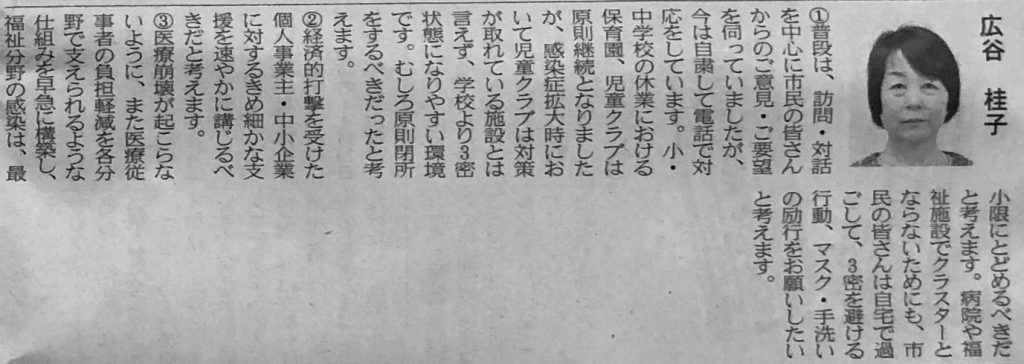 広谷 桂子
①普段は、訪問・対話
を中心に市民の皆さん
からのご意見・ご要望
を伺っていましたが、
今は自粛して電話で対
応をしています。小・
中学校の休業における
保育園、児童クラブは
原則継続となりました
が、感染症拡大時にお
いて児童クラブは対策
が取れている施設とは
言えず、学校より3密
状態になりやすい環境
です。むしろ原則閉所
をするべきだったと考
えます。
②経済的打撃を受けた
個人事業主・中小企業
に対するきめ細かな支
援を速やかに講じるべ
きだと考えます。
③医療崩壊が起こらな
いように、また医療従
事者の負担軽減を各分
野で支えられるような
仕組みを早急に構築し、
福祉分野の感染は、最
小限にとどめるべきだ
と考えます。病院や福
祉施設でクラスターと
ならないためにも、市
民の皆さんは自宅で過
ごして、3密を避ける
行動、マスク・手洗い
の励行をお願いしたい
と考えます。